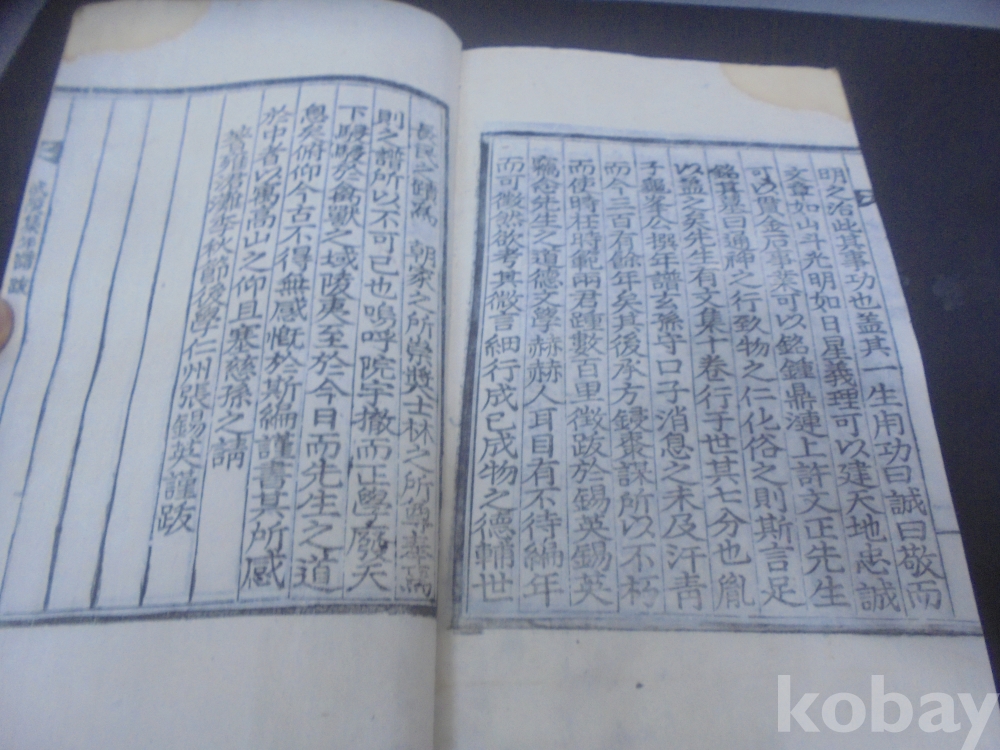 明之治此其事功也盖其一生用功曰誠曰敬而
文章如山斗光明如日星義理可以建天地忠誠
可以貫金石事業可以銘鍾鼎漣上許文正先生
銘其墓曰通神之行致物之仁化俗之則斯言足
以盖之矣先生有文集十卷行于世其七分也胤
子龜峯公撰年譜玄孫守口子消息之未及汗靑
而今三百有餘年矣其後承方鋟棗謀所以不朽
而使時柱時範兩君踵數百里徵跋於錫英錫英
竊念先生之道德文學赫赫人耳目有不待編年
而可徵然欲考其微言細行成己成物之德輔世
長民之 朝家之所崇奬士林之所尊奉
則之譜所以不可已也嗚呼院宇撤而正學廢天
下駸駸於禽獸之域陵夷至於今日而先生之道
息矣俯仰今古不得無感慨於斯編謹書其所感
於中者以寓高山之仰且塞慈孫之請
灘李秋節後學仁州張錫英謹跋
年譜 跋
kobay